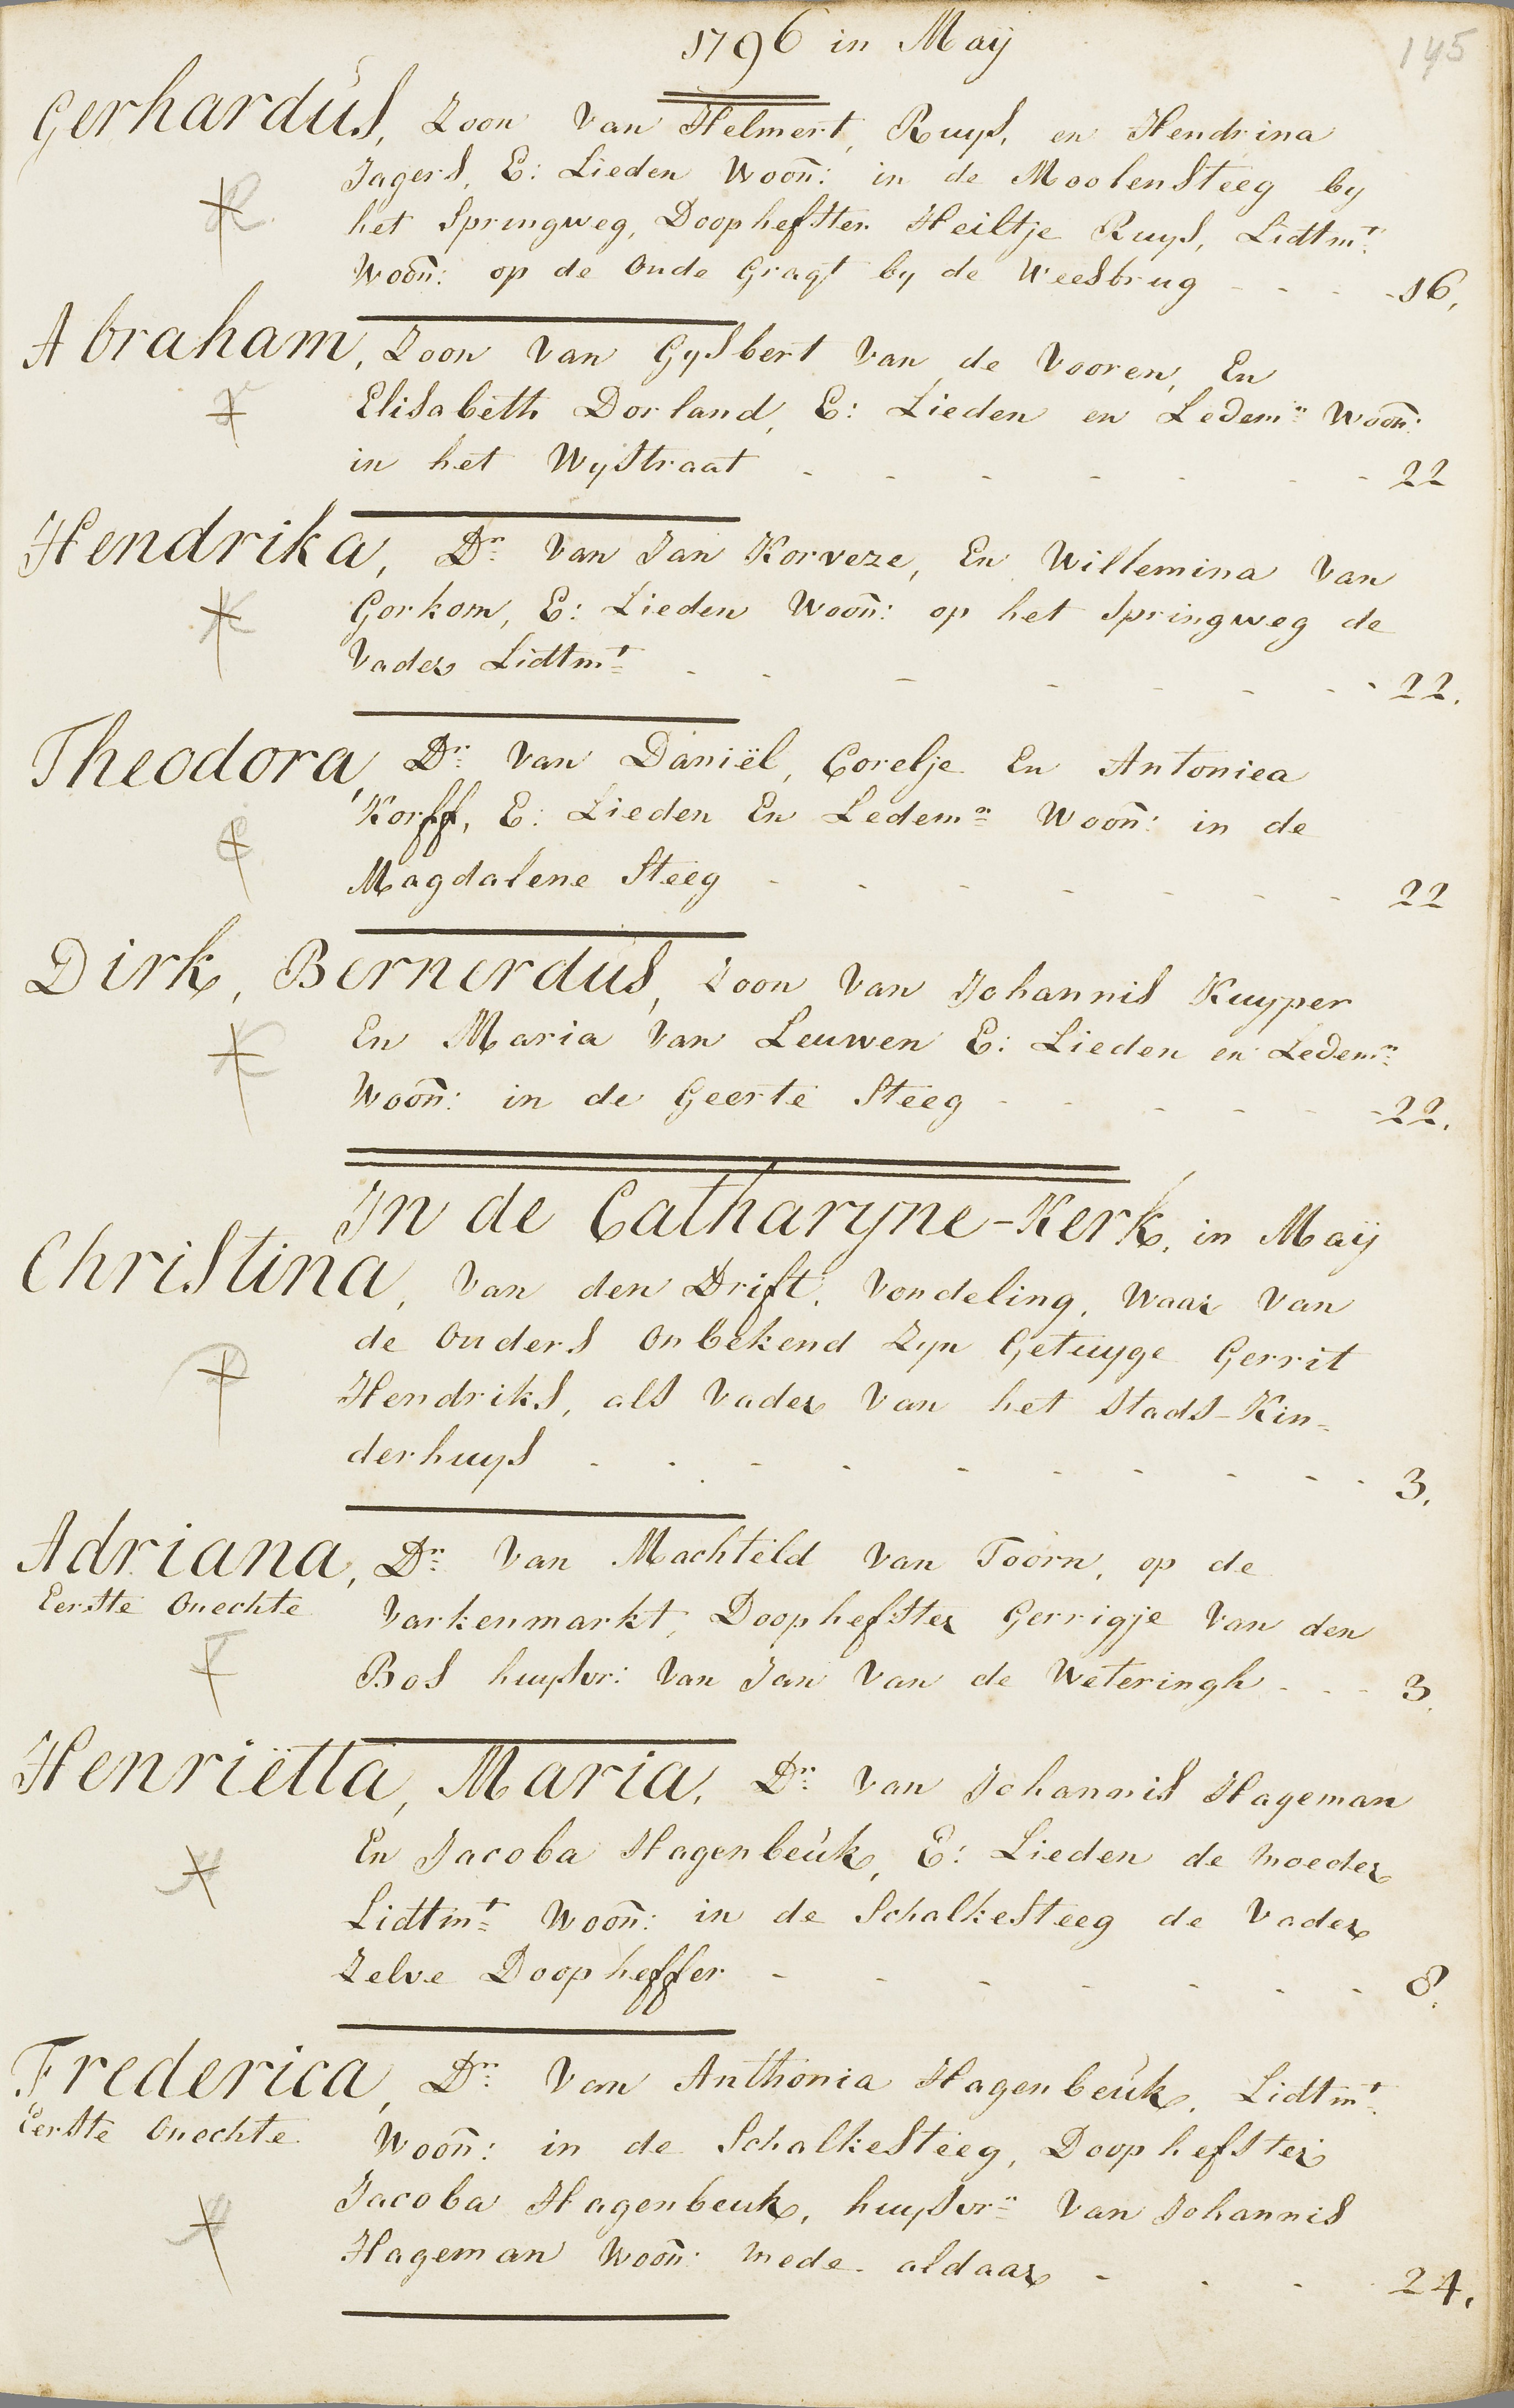 1796 in Maÿ
145
Gerhardus, Zoon van Helmert, Ruys, en Hendrina
Jagers, E: Lieden Woon̄: in de Moolensteeg by
het Springweg, Doophefster Heiltje Ruys, Lidtmt
Woon̄: op de Oude Gragt by de Weesbrug - - - - 16,
Abraham, Zoon van Gysbert van de Vooren, En
Elisabeth Dorland, E: Lieden en Ledemn Woon̄:
in het Wystraat - - - - - - - 22
Hendrika, Dr van Jan Korveze, En Willemina van
Gorkom, E: Lieden Woon̄: op het Springweg de
Vader Lidtmt - - - - - - - - 22.
Theodora, Dr van Daniël, Corelje En Antoniea
Korff, E: Lieden En Ledemn Woon̄: in de
Magdalene Steeg - - - - - - - 22
Dirk, Bernerdus, Zoon van Johannis Kuyper
En Maria van Leuwen E: Lieden en Ledemn
Woon̄: in de Geerte Steeg - - - - - - 22.
In de Catharyne-Kerk, in Maÿ
Christina, van den Drift, Vondeling, waar van
de Ouders Onbekend Zyn Getuyge Gerrit
Hendriks, als Vader van het Stads-Kin-
derhuys - - - - - - - - - - 3.
Adriana, Dr van Machteld van Toorn, op de
Eerste Onechte
Varkenmarkt, Doophefster Gerrigje van den
Bos huysvr: van Jan van de Weteringh - - - 3.
Henriëtta, Maria, Dr van Johannis Hageman
En Jacoba Hagenbeuk, E: Lieden de moeder
Lidtmt Woon̄: in de Schalkesteeg de Vader
Zelve Doopheffer - - - - - - - 8.
Frederica, Dr van Anthonia Hagenbeuk, Lidtmt
Eerste Onechte
Woon̄: in de Schalkesteeg, Doophefster
Jacoba Hagenbeuk, huysvr van Johannis
Hageman Woon̄: mede aldaar - - - - 24.